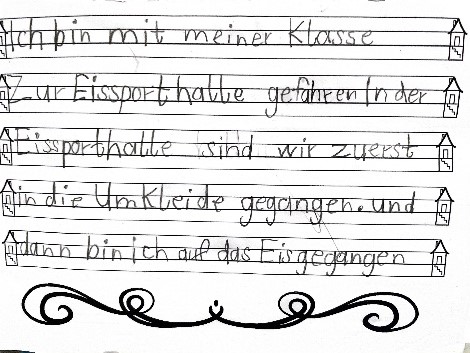 Ich bin mit meiner Klasse
Zur Eissporthalle gefahren In der
Eissporthalle sind wir zuerst
in die Umkleide gegangen. und
dann bin ich auf das Eis gegangen